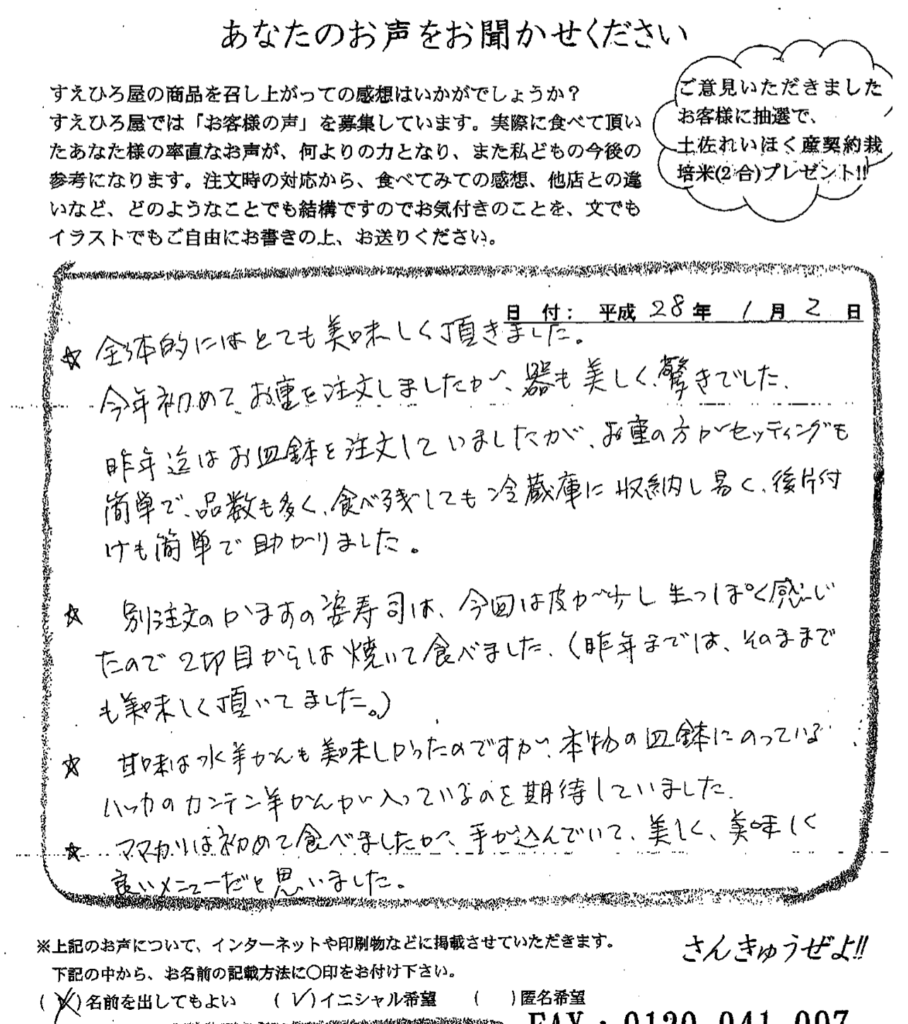 あなたのお声をお聞かせください
すえひろ屋の商品を召し上がっての感想はいかがでしょうか？
すえひろ屋では「お客様の声」を募集しています。実際に食べて頂い
たあなた様の率直なお声が、何よりの力となり、また私どもの今後の
参考になります。注文時の対応から、食べてみての感想、他店との違
いなど、どのようなことでも結構ですのでお気付きのことを、文でも
イラストでもご自由にお書きの上、お送りください。
ご意見いただきました
お客様に抽選で、
土佐れいほく産契約栽
培米(2合)プレゼント!!
日 付： 平成 28年 1月 2日
☆ 全体的にはとても美味しく頂きました。
今年初めて、お重を注文しましたが、器も美しく、驚きでした。
昨年迄はお皿鉢を注文していましたが、お重の方がセッティングも
簡単で、品数も多く、食べ残しても冷蔵庫に収納し易く、後片付
けも簡単で助かりました。
☆ 別注文のかますの姿寿司は、今回は皮が少し生っぽく感じ
たので2切目からは焼いて食べました。（昨年までは、そのままで
も美味しく頂いてました。）
☆ 甘味は水羊かんも美味しかったのですが、本物の皿鉢にのっている
ハッカのカンテン羊かんが入っているのを期待していました。
☆ ママカリは初めて食べましたが、手が込んでいて、美しく、美味しく
良いメニューだと思いました。
※上記のお声について、インターネットや印刷物などに掲載させていただきます。
下記の中から、お名前の記載方法に○印をお付け下さい。
さんきゅうぜよ!!
( )名前を出してもよい ( ✓ )イニシャル希望 ( )匿名希望
FAX：0120-041-007